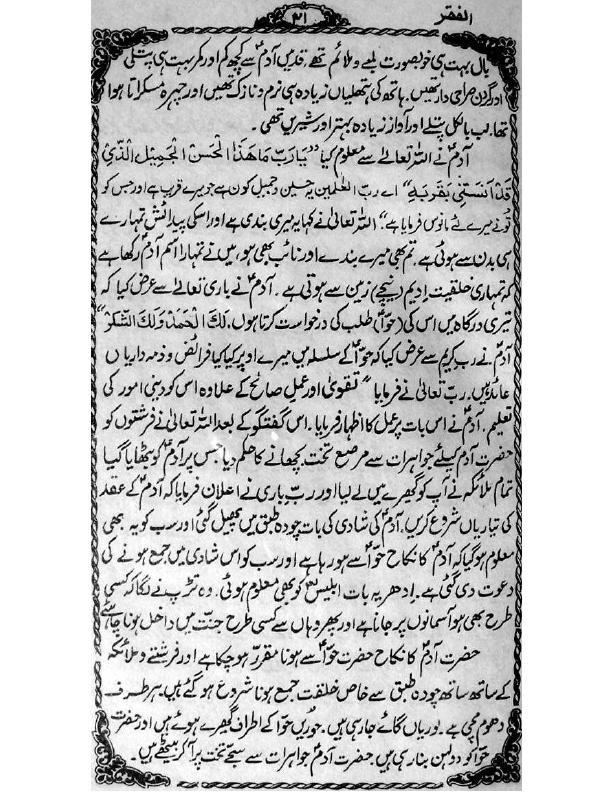 الفقر
۳۱
بال بہت ہی خوبصورت لمبے و ملائم تھے، قد میں آدمؑ سے کچھ کم اور کمر بہت ہی پتلی
اور گردن صراحی دار تھیں۔ ہاتھ کی ہتھلیاں زیادہ ہی نرم و نازک تھیں اور چہرہ مسکراتا ہوا
تھا۔ لب بالکل پتلے اور آواز زیادہ بہتر اور شیریں تھی۔
آدمؑ نے اللہ تعالےٰ سے معلوم کیا "یَارَبِّ مَا هَذَا الْحَسَنُ الْجَمِیْلُ الَّذِیْ
قَدْ اٰنَسْتَنِیْ بِقُرْبِهٖ" اے ربّ العٰلمین یہ حسین و جمیل کون ہے جو میرے قریب ہے اور جس کو
تُو نے میرے لئے مانوس فرمایا ہے۔" اللہ تعالیٰ نے کہا یہ میری بندی ہے اور اسکی پیدائش تمہارے
ہی بدن سے ہوئی ہے۔ تم بھی میرے بندے اور نائب بھی ہو، میں نے تمہارا اسم آدمؑ رکھا ہے
کہ تمہاری خلقیت ادیم (نیچے) زمین سے ہوتی ہے۔ آدمؑ نے باری تعالےٰ سے عرض کیا کہ
تیری درگاہ میں اس کی (حوّاؑ) طلب کی درخواست کرتا ہوں، لَكَ الْحَمْدُ وَلَكَ الشُّكْرُ"
آدمؑ نے رب کریم سے عرض کیا کہ حوّاؑ کے سلسلہ میں میرے اوپر کیا کیا فرائض و ذمہ داریاں
عائد ہیں۔ ربّ تعالیٰ نے فرمایا "تقویٰ اور عمل صالح کے علاوہ اس کو دینی امور کی
تعلیم۔ آدمؑ نے اس بات پر عمل کا اظہار فرمایا۔ اس گفتگو کے بعد اللہ تعالیٰ نے فرشتوں کو
حضرت آدمؑ کیلئے جواہرات سے مرصع تخت بچھانے کا حکم دیا جس پر آدمؑ کو بٹھایا گیا
تمام ملائکہ نے آپ کو گھیرے میں لے لیا اور ربّ باری نے اعلان فرمایا کہ آدمؑ کے عقد
کی تیاریاں شروع کریں۔ آدمؑ کی شادی کی بات چودہ طبق میں پھیل گئی اور سب کو یہ بھی
معلوم ہو گیا کہ آدمؑ کا نکاح حوّاؑ سے ہو رہا ہے اور سب کو اس شادی میں جمع ہونے کی
دعوت دی گئی ہے۔ اِدھر یہ بات ابلیس کو بھی معلوم ہوئی۔ وہ تڑپ نے لگا کہ کسی
طرح بھی ہو آسمانوں پر جانا ہے اور پھر وہاں سے کسی طرح جنّت میں داخل ہونا چاہئے
حضرت آدمؑ کا نکاح حضرت حوّاؑ سے ہونا مقرر ہو چکا ہے اور فرشتے و ملائکہ
کے ساتھ ساتھ چودہ طبق سے خاص خلقت جمع ہونا شروع ہو گئے ہیں، ہر طرف۔
دھوم مچی ہے۔ لوریاں گائے جا رہی ہیں۔ حوریں حوّا کے اطراف گھیرے ہوئے ہیں اور حضرت
حوّا کو دولہن بنا رہی ہیں۔ حضرت آدمؑ جواہرات سے سجے تخت پر آ کر بیٹھے ہیں۔